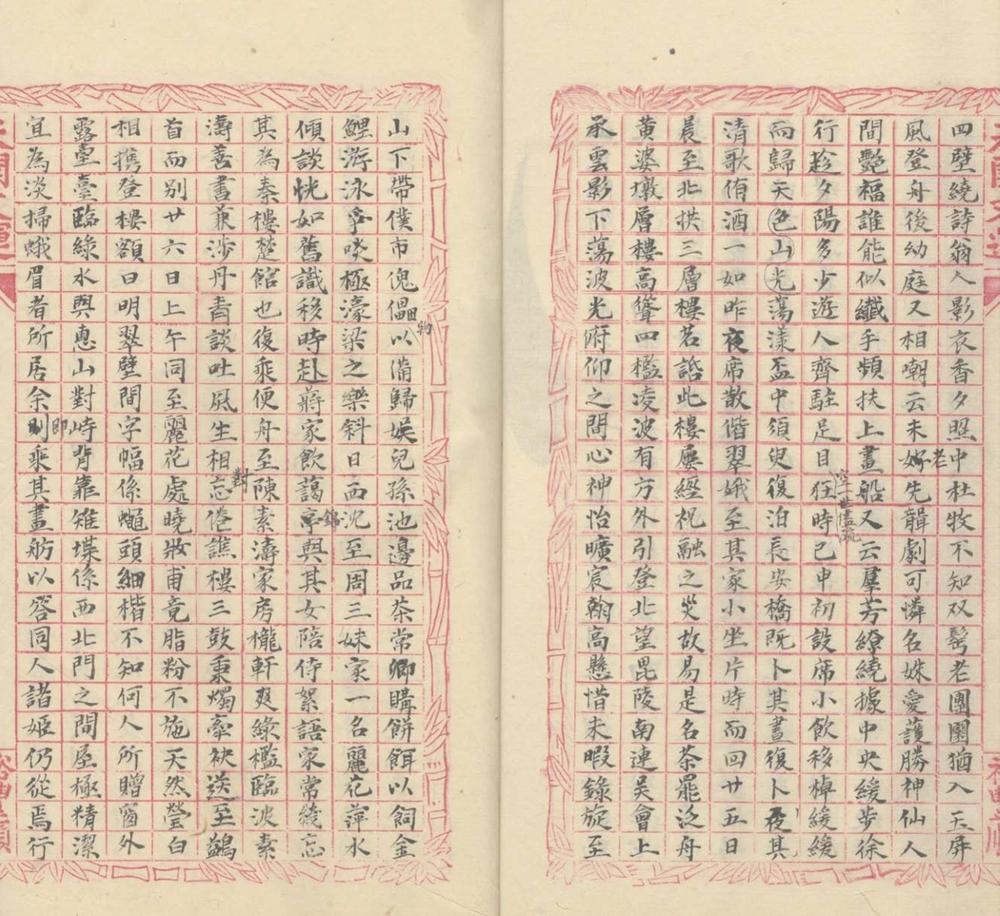 四壁繞詩翁人影衣香夕照中杜牧不知双髩老團團猶入玉屏
風登舟後幼庭又相嘲云未老婦先韻劇可憐名姝愛護勝神仙人
間艷福誰能似纖手頻扶上畫船又云羣芳繚繞據中央緩步徐
行趁夕陽多少遊人齊駐足目狂時已申初設席小飲移棹緩緩
而歸天色山光蕩漾盃中須臾復泊長安橋既卜其晝復卜夜其
清歌侑酒一如昨夜席散偕翠娥至其家小坐片時而回廿五日
晨至北拱三層樓茗話此樓屢經祝融之災故易是名茶罷泛舟
黄婆墩層樓高聳四檻凌波有方外引登北望毘陵南連吳會上
承雲影下蕩波光俯仰之間心神怡曠宸翰高懸惜未暇錄旋至
山下帶僕市傀儡物以滿歸娱兒孫池邊品茶常卿購餅餌以飼金
鯉游泳爭啖極濠梁之樂斜日西沈至周三妹家一名麗花萍水
傾談恍如舊識移時赴蔣家飲藹亭錦與其女陪侍絮語家常綾忘
其為秦樓楚館也復乘便舟至陳素濤家房櫳軒爽綠檻臨波素
濤善書兼涉丹青談吐風生相對忘倦譙樓三鼓秉燭牽袂送至鷁
首而別廿六日上午同至麗花處曉妝甫竟脂粉不施天然瑩白
相携登樓額曰明翠壁間字幅係蠅頭細楷不知何人所贈窗外
露臺臺臨綠水與惠山對峙背靠雉堞係西北門之間屋極精潔
宜為淡掃蛾眉者所居余即則乘其畫舫以答同人諸姬仍從焉行